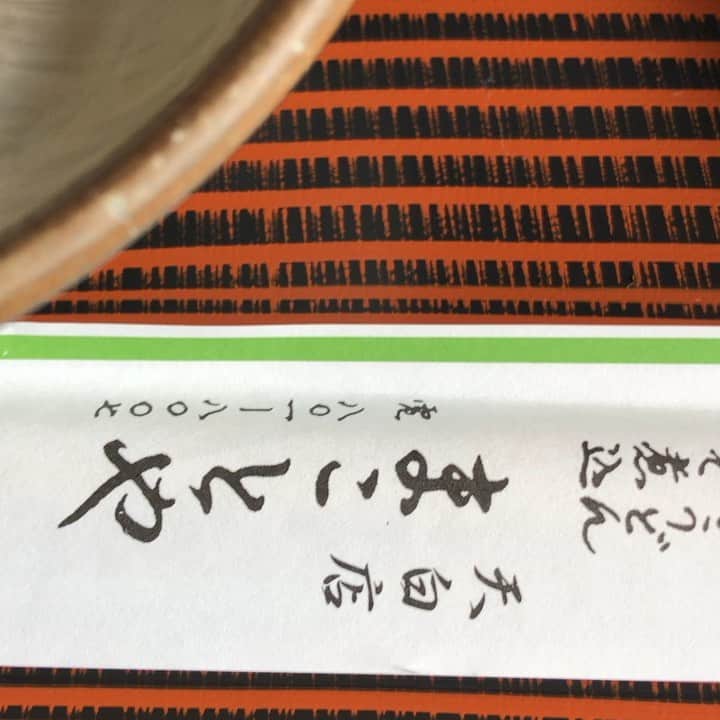 うどん
煮込
天白店
まことや
電 八〇一ー八〇〇七